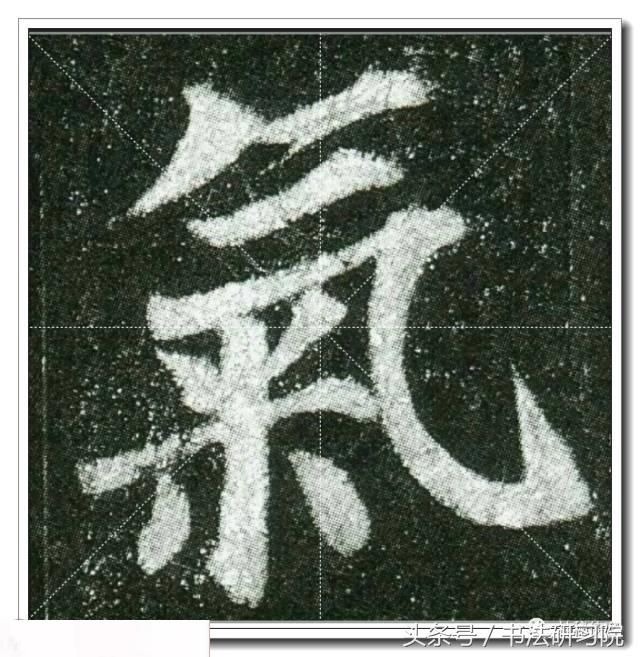 氣
头条号 / 书法研习院